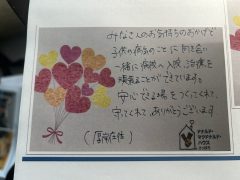 みなさんのお気持ちのおかげで
子供の病気のことに向き合い
一緒に病院へ入院、治療を
頑張ることができています。
安心できる場をつくってくれて、
守ってくれて、ありがとうございます
ドナルド・
マクドナルド・
ハウス